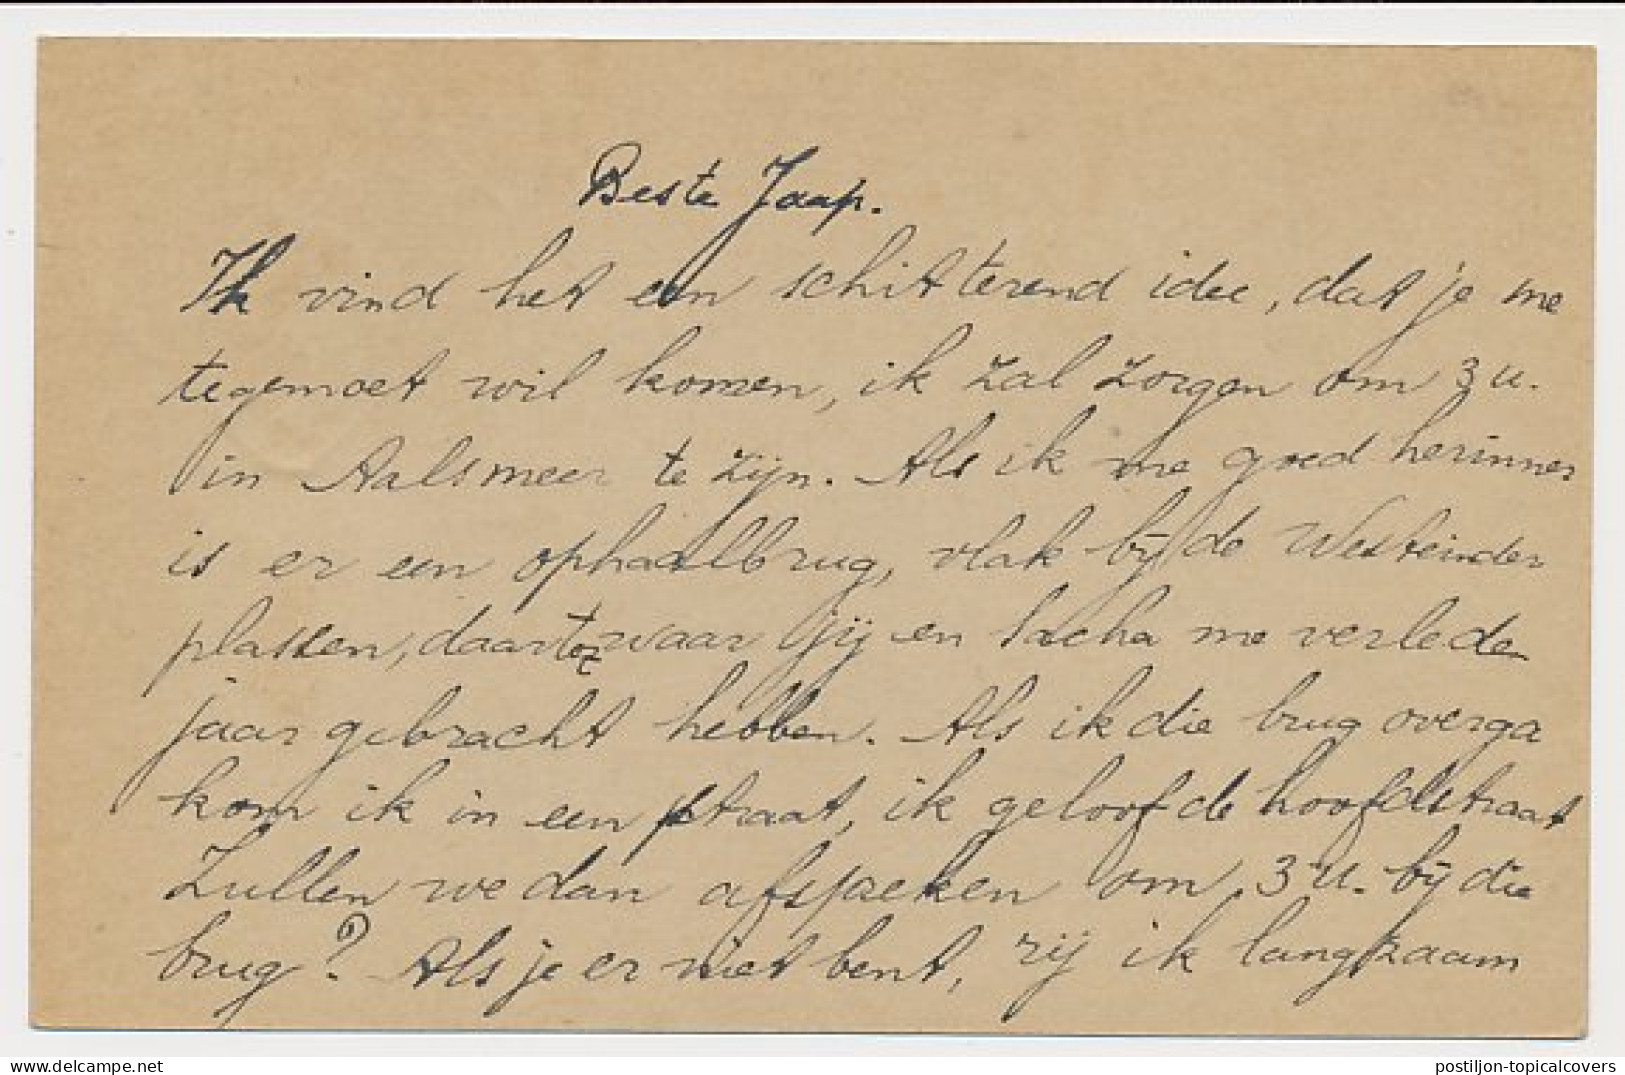 Beste Jaap.
Ik vind het een schitterend idee, dat je me
tegemoet wil komen, ik zal zorgen om 3 u.
in Aalsmeer te zijn. Als ik me goed herinner
is er een ophaalbrug, vlak bij de Westeinder
plassen, daar tot waar jij en Sacha me verleden
jaar gebracht hebben. Als ik die brug overga
kom ik in een straat, ik geloof de hoofdstraat
Zullen we dan afspreken om 3 u. bij die
brug? Als je er niet bent, rij ik langzaam
postiljon-topicalcovers
delcampe.net